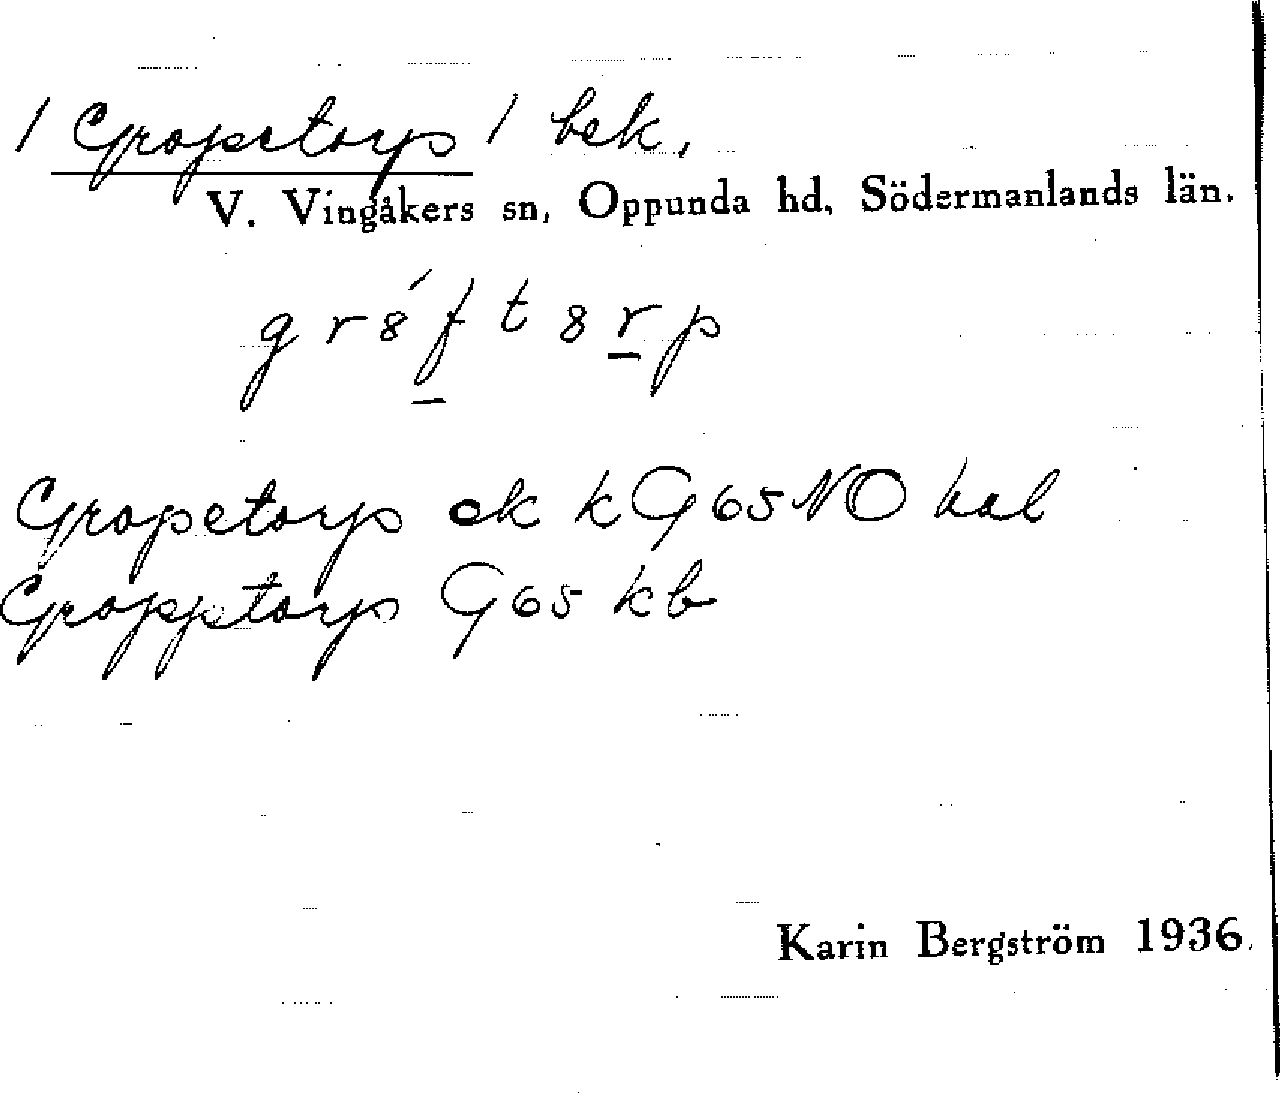 / Gropetorp / bek.
V. Vingåkers sn, Oppunda hd, Södermanlands län.
gr8́ft8rp
Gropetorp ek k G65NO hal
Gropptorp G65 kb
Karin Bergström 1936.